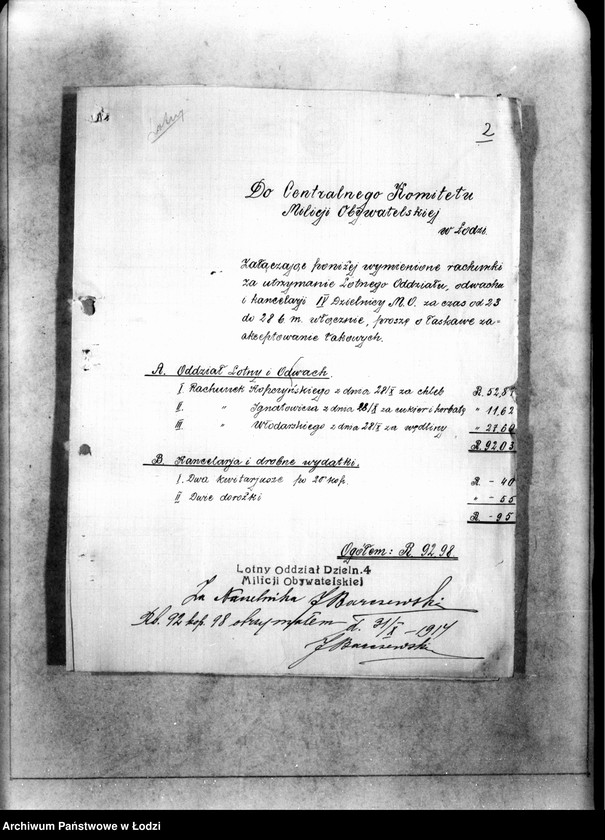 2
Do Centralnego Komitetu
Milicji Obywatelskiej
w Łodzi.
Załączając poniżej wymienione rachunki
za utrzymanie Lotnego Oddziału, odwachu
i kancelarji IV Dzielnicy M.O. za czas od 23
do 28 b.m. włącznie, proszę o łaskawe za-
akceptowanie takowych.
A. Oddział Lotny i Odwach.
I. Rachunek Kopczyńskiego z dnia 28/X za chleb R. 52,81
II. " Ignatowicza z dnia 28/X za cukier i herbatę " 11,62
III. " Włodarskiego z dnia 28/X za wędliny " 27.60
R. 92 03
B. Kancelarja i drobne wydatki.
I. Dwa kwitarjusze po 20 kop. R. - 40
II Dwie dorożki " - 55
R - 95
Ogółem: R. 92.98.
Lotny Oddział Dzieln. 4
Milicji Obywatelskiej
Za Naczelnika J Barczewski
Rb. 92 kop. 98 otrzymałem d. 31/X - 1914
J Barczewski
Archiwum Państwowe w Łodzi